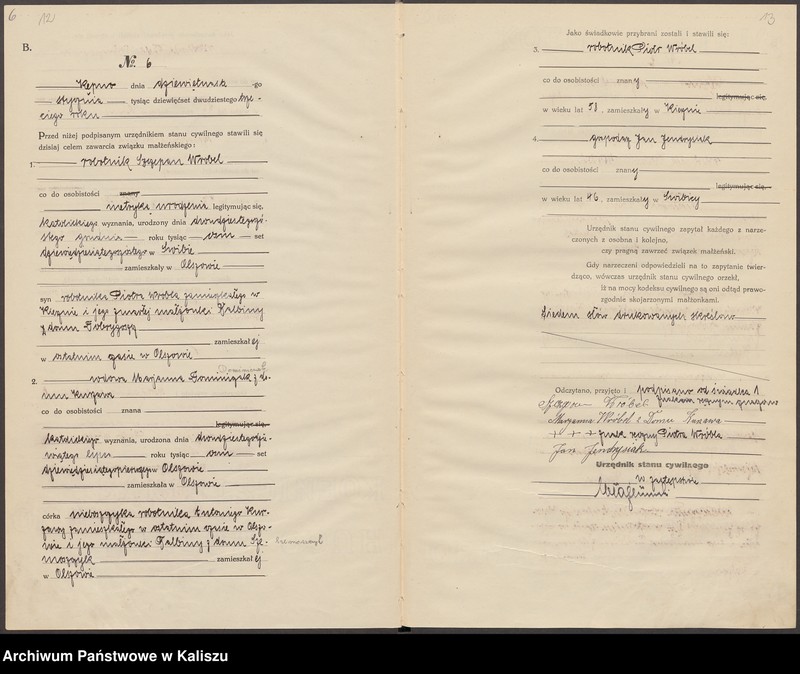 6
12
B.
№ 6
Kępno dnia dziewiętnastego
stycznia tysiąc dziewięćset dwudziestego trze-
ciego roku
Przed niżej podpisanym urzędnikiem stanu cywilnego stawili się
dzisiaj celem zawarcia związku małżeńskiego:
1. robotnik Szczepan Wróbel
co do osobistości znany
metryką urodzenia legitymując się,
katolickiego wyznania, urodzony dnia dwudziestegoszó-
stego grudnia roku tysiąc ośm set
dziewięćdziesiątego w
zamieszkały w Olszowie
syn robotnika Piotra Wróbla zamieszkałego w
i jego zmarłej małżonki Balbiny
z domu
zamieszkałej
w ostatnim czasie w Olszowie
2. wdowa Marjanna z do-
mu Kurzawa
co do osobistości znana
legitymując się,
katolickiego wyznania, urodzona dnia dwudziestegodzie-
wiątego lipca roku tysiąc ośm set
dziewięćdziesiątego w Olszowie
zamieszkała w Olszowie
córka nieboszczyka robotnika Antoniego Kur-
zawy zamieszkałego w ostatnim czasie w Olszo-
wie i jego małżonki Balbiny z domu
zamieszkałej
w Olszowie
13
Jako świadkowie przybrani zostali i stawili się:
3. robotnik Piotr Wróbel
co do osobistości znany
legitymując się,
w wieku lat 58, zamieszkały w
4. gospodarz Jan Jendrysiak
co do osobistości znany
legitymując się,
w wieku lat 46, zamieszkały w
Urzędnik stanu cywilnego zapytał każdego z narze-
czonych z osobna i kolejno,
czy pragną zawrzeć związek małżeński.
Gdy narzeczeni odpowiedzieli na to zapytanie twier-
dząco, wówczas urzędnik stanu cywilnego orzekł,
iż na mocy kodeksu cywilnego są oni odtąd prawo-
zgodnie skojarzonymi małżonkami.
Siedem słów drukowanych skreślono
Odczytano, przyjęto i podpisano od świadka 1
znakiem ręcznym
Szczepan Wróbel
Maryanna Wróbel z Domu Kurzawa
+ + + znak ręczny Piotra Wróbla
Jan Jendrysiak
Urzędnik stanu cywilnego
w zastępstwie
Archiwum Państwowe w Kaliszu